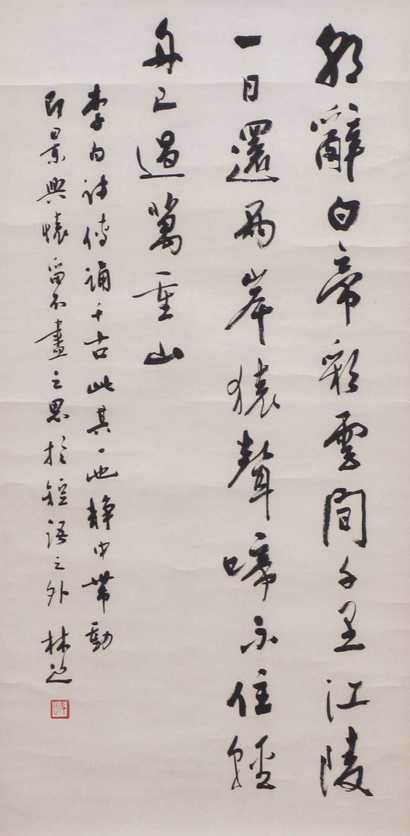 朝辭白帝彩雲間千里江陵
一日還兩岸猿聲啼不住輕
舟已過萬重山
李白詩傳誦千古此其一也靜中帶動
即景興懷留不盡之思於短語之外 林